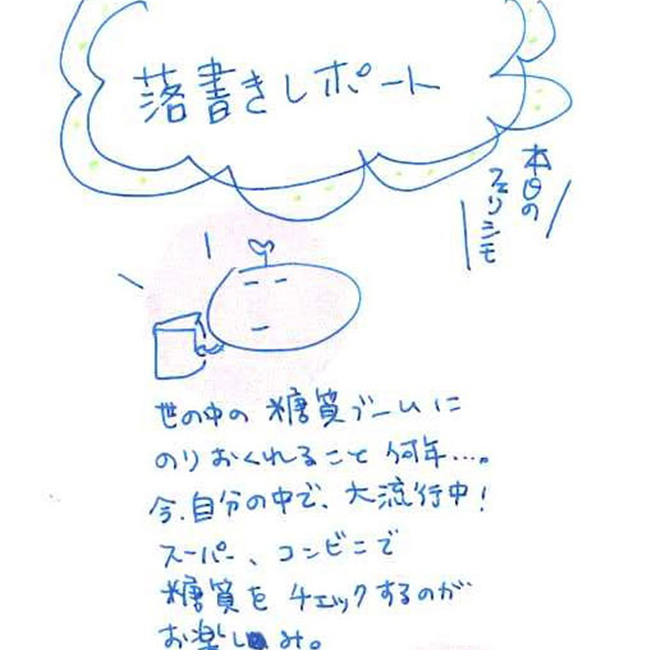 落書きレポート
本日の
フェリシモ
世の中の糖質ブームに
のりおくれること何年…。
今、自分の中で、大流行中!
スーパー、コンビニで
糖質をチェックするのが
お楽しみ。